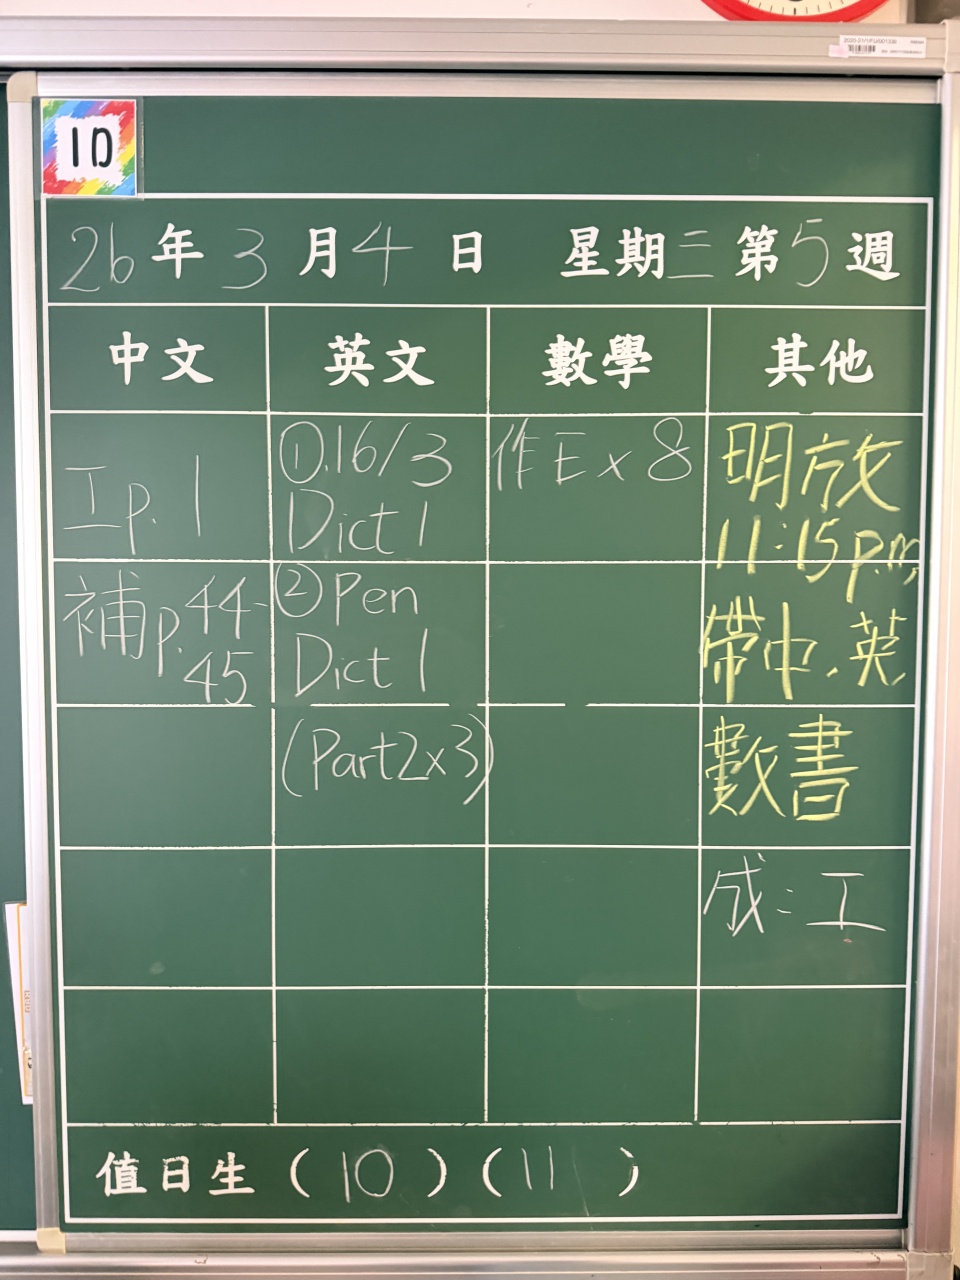 1D
26年3月4日 星期三第5週
中文 英文 數學 其他
工p.1
補p.44-
45
①.16/3
Dict 1
②Pen
Dict 1
(Part2x3)
作Ex8
明放
11:15p.m
帶中.英.
數書
成:工
值日生(10)(11)